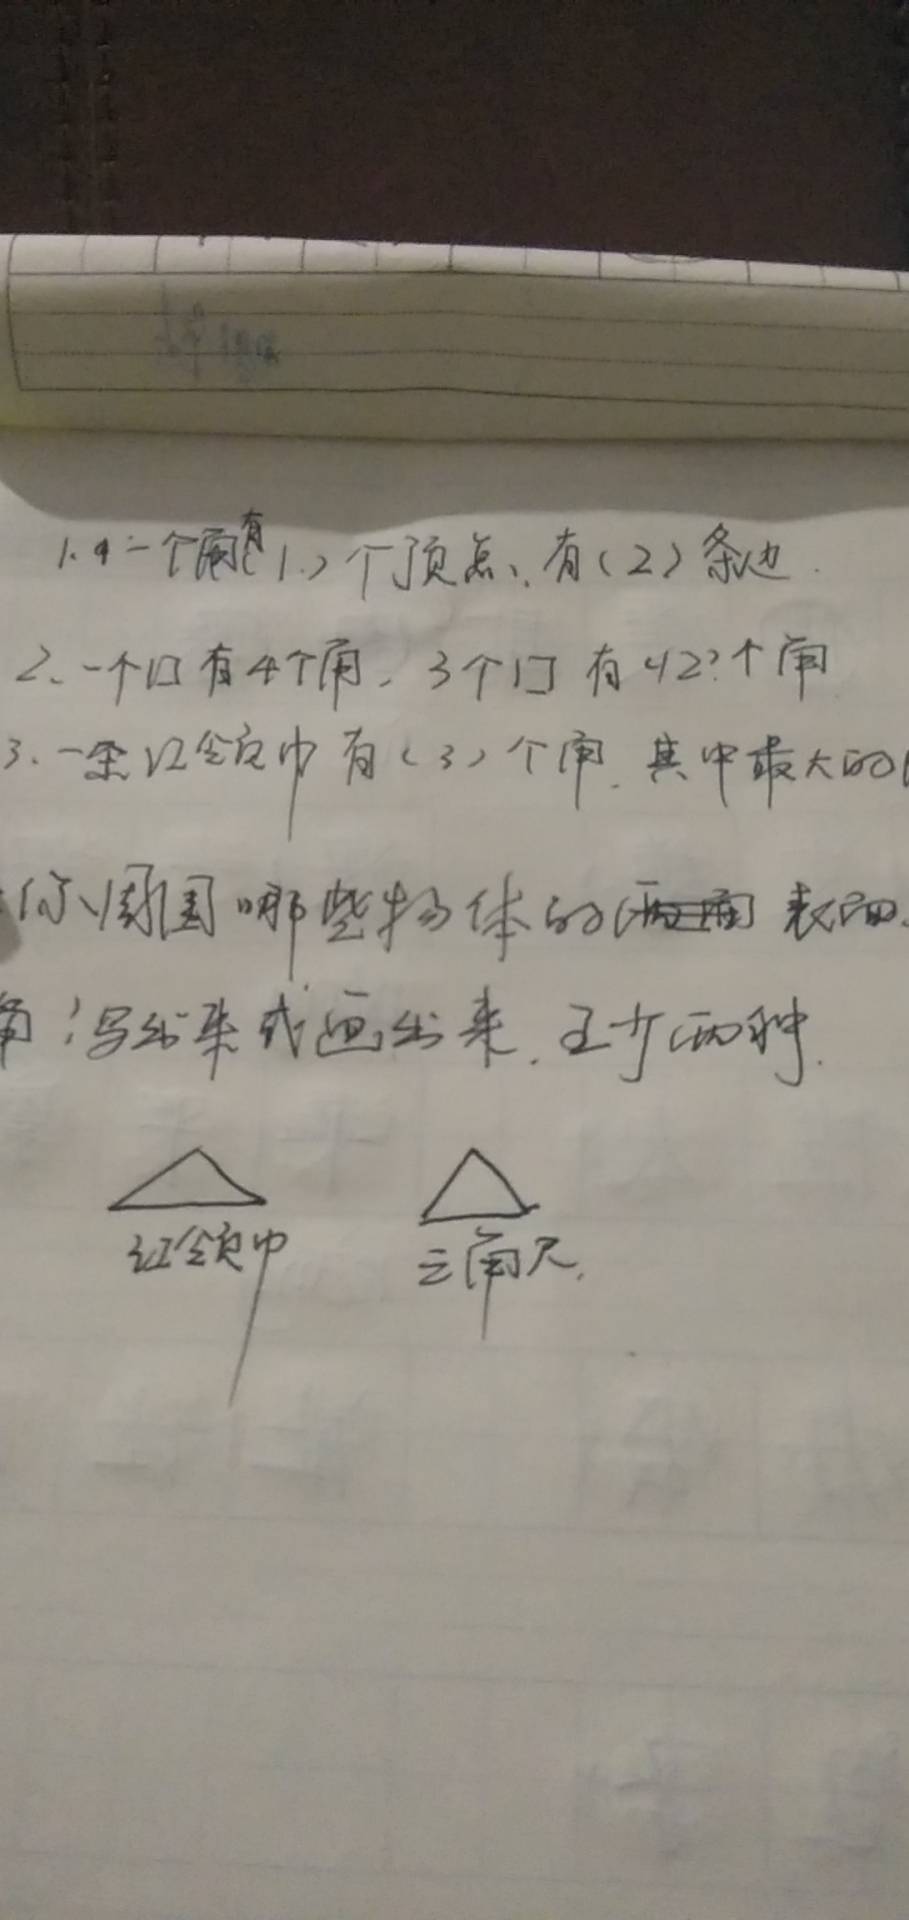 1. 一个角有(1.)个顶点、有(2)条边.
2、一个口有4个角、3个口有12个角
3、一条红领巾有(3)个角.其中最大的
你周围哪些物体的表面
角:写出来或画出来.至少两种.
红领巾 三角尺.